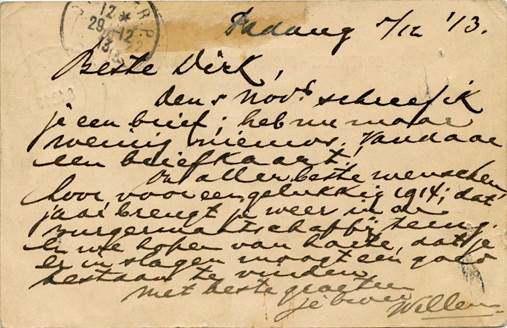 12
29.12
13
Padang 5/12 '13.
Beste Dirk,
den 5 Nov. schreef ik
je een brief; heb nu maar
weinig nieuws. Vandaar
een briefkaart.
Onze allerbeste wenschen,
hoor, voor een gelukkig 1914; dat
jaar brengt je weer in de
burgermaatschappij terug.
En we hopen van harte, dat je
er in slagen moogt een goed
bestaan te vinden
Met beste groeten
je broer Willem